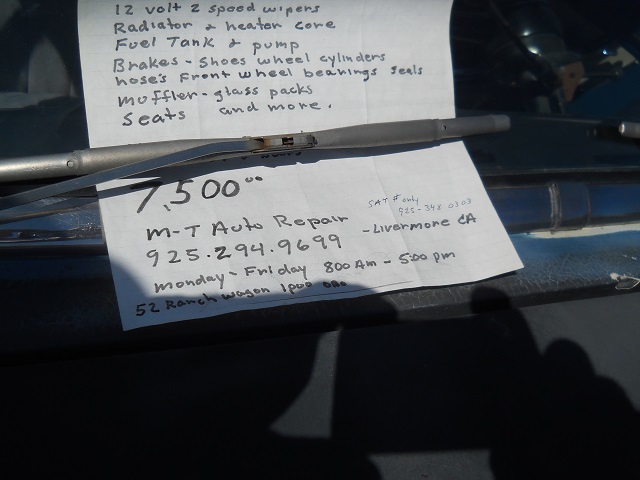 12 volt 2 speed wipers
Radiator & heater core
Fuel Tank & pump
Brakes - Shoes wheel cylinders
hose's Front wheel bearings seals
muffler - glass packs
Seats and more.
7,500.00
SAT # only
925-348 0303
M-T Auto Repair
925.294.9699 - Livermore CA
monday - Friday 800 Am - 5:00 pm
52 Ranch wagon 1000 OBO